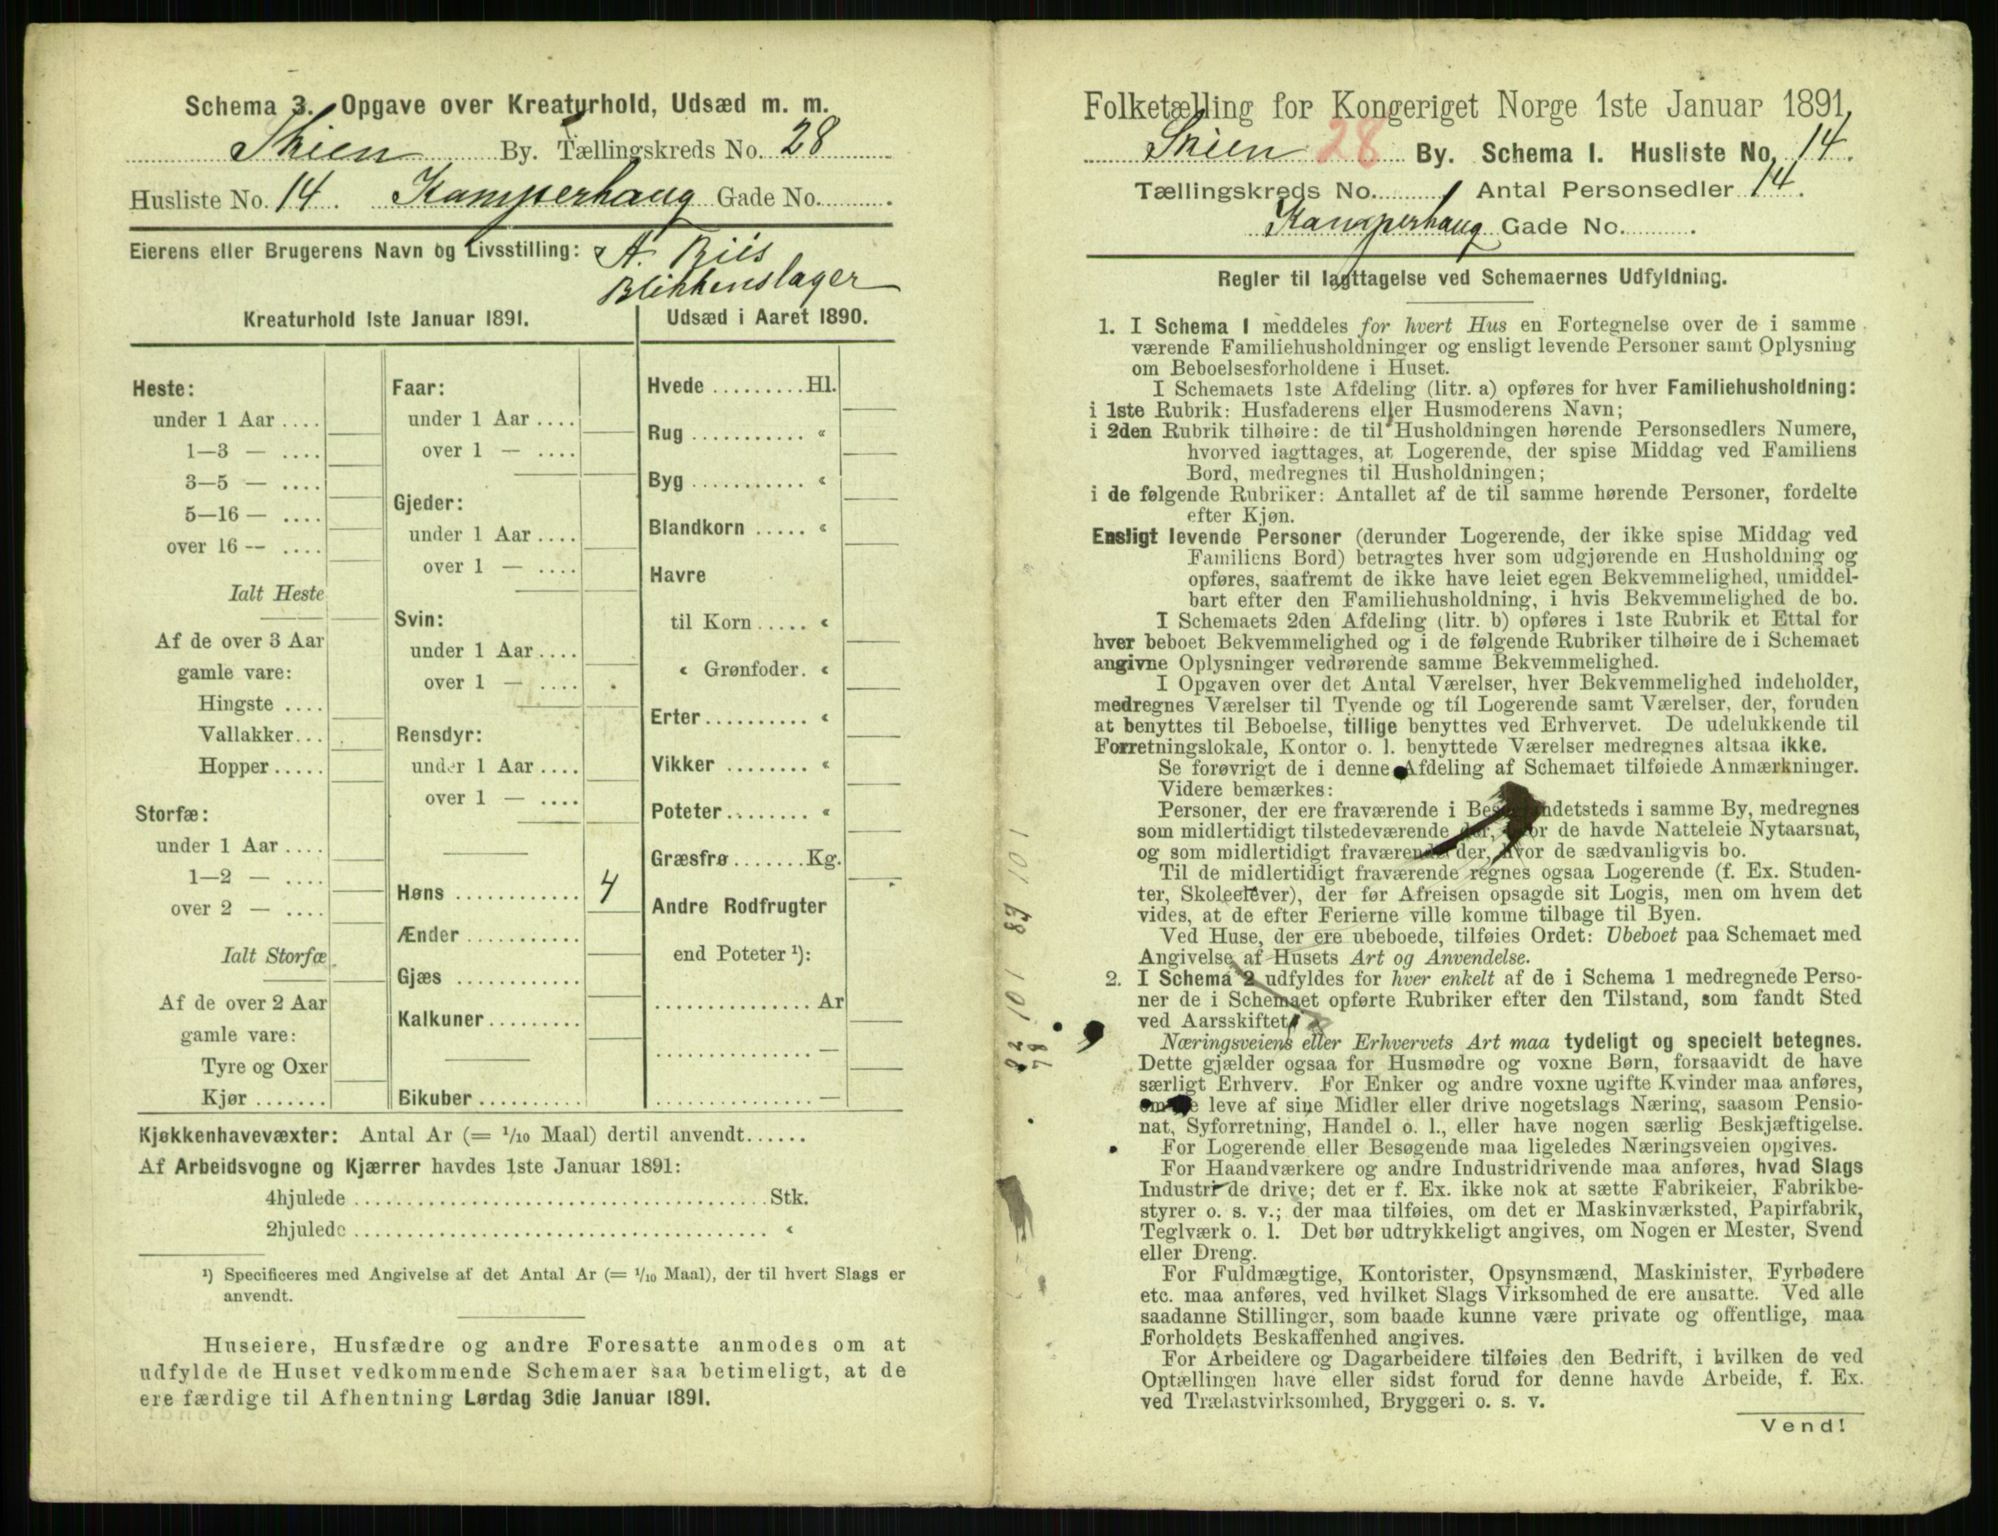 Schema 3. Opgave over Kreaturhold, Udsæd m. m.
Skien By. Tællingskreds No. 28
Husliste No. 14. Kamperhaug Gade No.
Eierens eller Brugerens Navn og Livsstilling: A. Biis
Blikkenslager
Kreaturhold 1ste Januar 1891.
Heste:
under 1 Aar ....
1—3 — ....
3—5 — ....
5—16 — ....
over 16 -- ....
Ialt Heste
Af de over 3 Aar
gamle vare:
Hingste ....
Vallakker...
Hopper.....
Storfæ:
under 1 Aar ....
1—2 — ....
over 2 — ....
Ialt Storfæ
Af de over 2 Aar
gamle vare:
Tyre og Oxer
Kjør .......
Faar:
under 1 Aar ....
over 1 — ....
Gjeder:
under 1 Aar ....
over 1 — ....
Svin:
under 1 Aar ....
over 1 — ....
Rensdyr:
under 1 Aar ....
over 1 — ....
Høns ............ 4
Ænder ...........
Gjæs ............
Kalkuner.........
Bikuber ..........
Udsæd i Aaret 1890.
Hvede .........Hl.
Rug ........... «
Byg ........... «
Blandkorn ..... «
Havre
til Korn ..... «
« Grønfoder. «
Erter.......... «
Vikker ........ «
Poteter........ «
Græsfrø .......Kg.
Andre Rodfrugter
end Poteter ¹):
............... Ar
............... —
............... —
Kjøkkenhavevæxter: Antal Ar (= 1/10 Maal) dertil anvendt......
Af Arbeidsvogne og Kjærrer havdes 1ste Januar 1891:
4hjulede ........................................Stk.
2hjulede ........................................ «
¹) Specificeres med Angivelse af det Antal Ar (= 1/10 Maal), der til hvert Slags er
anvendt.
Huseiere, Husfædre og andre Foresatte anmodes om at
udfylde de Huset vedkommende Schemaer saa betimeligt, at de
ere færdige til Afhentning Lørdag 3die Januar 1891.
Folketælling for Kongeriget Norge 1ste Januar 1891.
Skien 28 By. Schema I. Husliste No. 14.
Tællingskreds No. Antal Personsedler 14.
Kamperhaug Gade No.
Regler til Iagttagelse ved Schemaernes Udfyldning.
1. I Schema 1 meddeles for hvert Hus en Fortegnelse over de i samme
værende Familiehusholdninger og ensligt levende Personer samt Oplysning
om Beboelsesforholdene i Huset.
I Schemaets 1ste Afdeling (litr. a) opføres for hver Familiehusholdning:
i 1ste Rubrik: Husfaderens eller Husmoderens Navn;
i 2den Rubrik tilhøire: de til Husholdningen hørende Personsedlers Numere,
hvorved iagttages, at Logerende, der spise Middag ved Familiens
Bord, medregnes til Husholdningen;
i de følgende Rubriker: Antallet af de til samme hørende Personer, fordelte
efter Kjøn.
Ensligt levende Personer (derunder Logerende, der ikke spise Middag ved
Familiens Bord) betragtes hver som udgjørende en Husholdning og
opføres, saafremt de ikke have leiet egen Bekvemmelighed, umiddel-
bart efter den Familiehusholdning, i hvis Bekvemmelighed de bo.
I Schemaets 2den Afdeling (litr. b) opføres i 1ste Rubrik et Ettal for
hver beboet Bekvemmelighed og i de følgende Rubriker tilhøire de i Schemaet
angivne Oplysninger vedrørende samme Bekvemmelighed.
I Opgaven over det Antal Værelser, hver Bekvemmelighed indeholder,
medregnes Værelser til Tyende og til Logerende samt Værelser, der, foruden
at benyttes til Beboelse, tillige benyttes ved Erhvervet. De udelukkende til
Forretningslokale, Kontor o. l. benyttede Værelser medregnes altsaa ikke.
Se forøvrigt de i denne Afdeling af Schemaet tilføiede Anmærkninger.
Videre bemærkes:
Personer, der ere fraværende i Besøg andetsteds i samme By, medregnes
som midlertidigt tilstedeværende der, hvor de havde Natteleie Nytaarsnat,
og som midlertidigt fraværende der, hvor de sædvanligvis bo.
Til de midlertidigt fraværende regnes ogsaa Logerende (f. Ex. Studen-
ter, Skoleelever), der før Afreisen opsagde sit Logis, men om hvem det
vides, at de efter Ferierne ville komme tilbage til Byen.
Ved Huse, der ere ubeboede, tilføies Ordet: Ubeboet paa Schemaet med
Angivelse af Husets Art og Anvendelse.
2. I Schema 2 udfyldes for hver enkelt af de i Schema 1 medregnede Perso-
ner de i Schemaet opførte Rubriker efter den Tilstand, som fandt Sted
ved Aarsskiftet.
Næringsveiens eller Erhvervets Art maa tydeligt og specielt betegnes.
Dette gjælder ogsaa for Husmødre og voxne Børn, forsaavidt de have
særligt Erhverv. For Enker og andre voxne ugifte Kvinder maa anføres,
om de leve af sine Midler eller drive nogetslags Næring, saasom Pensio-
nat, Syforretning, Handel o. l., eller have nogen særlig Beskjæftigelse.
For Logerende eller Besøgende maa ligeledes Næringsveien opgives.
For Haandværkere og andre Industridrivende maa anføres, hvad Slags
Industri de drive; det er f. Ex. ikke nok at sætte Fabrikeier, Fabrikbe-
styrer o. s. v.; der maa tilføies, om det er Maskinværksted, Papirfabrik,
Teglværk o. l. Det bør udtrykkeligt angives, om Nogen er Mester, Svend
eller Dreng.
For Fuldmægtige, Kontorister, Opsynsmænd, Maskinister, Fyrbødere
etc. maa anføres, ved hvilket Slags Virksomhed de ere ansatte. Ved alle
saadanne Stillinger, som baade kunne være private og offentlige, maa
Forholdets Beskaffenhed angives.
For Arbeidere og Dagarbeidere tilføies den Bedrift, i hvilken de ved
Optællingen have eller sidst forud for denne havde Arbeide, f. Ex.
ved Trælastvirksomhed, Bryggeri o. s. v.
Vend!